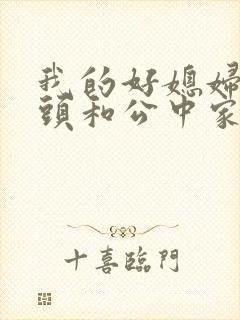 我的好媳婦
頭和公中家
十喜臨門